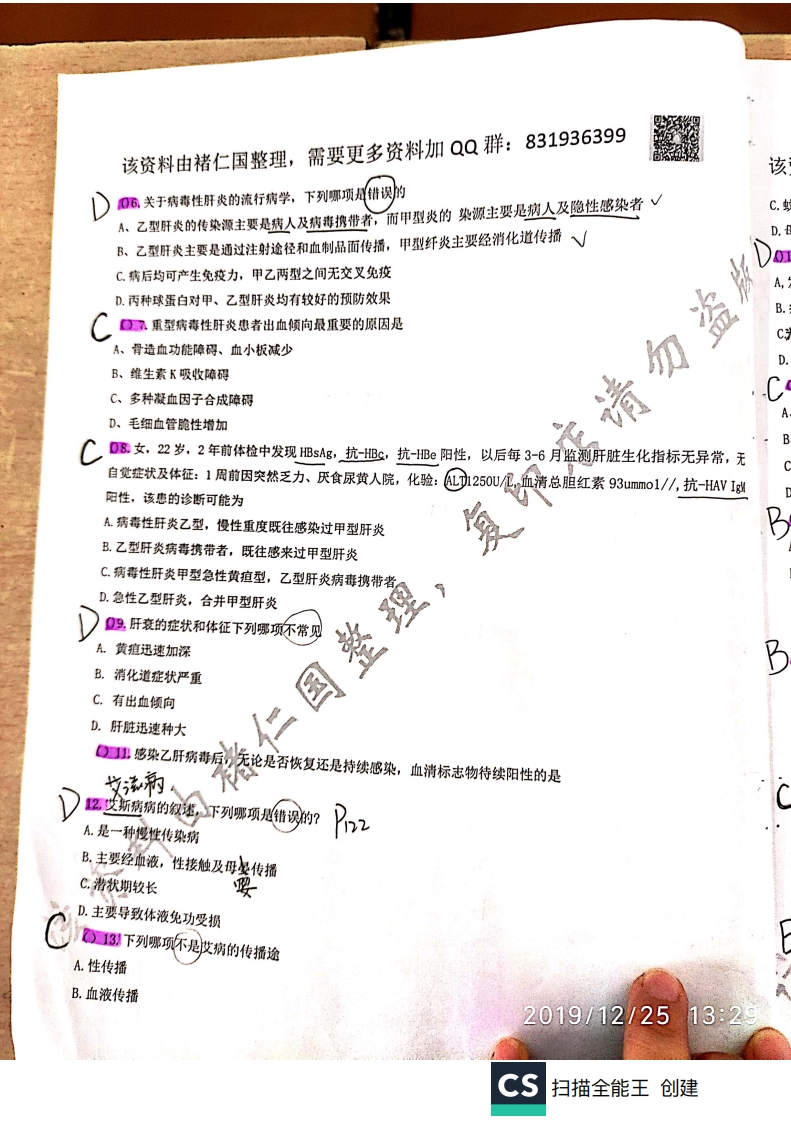 该资料由褚仁国整理，需要更多资料加 QQ 群：831936399
D ()6. 关于病毒性肝炎的流行病学，下列哪项是错误的
A、乙型肝炎的传染源主要是病人及病毒携带者，而甲型炎的 染源主要是病人及隐性感染者 ✓
B、乙型肝炎主要是通过注射途径和血制品而传播，甲型纤炎主要经消化道传播 ✓
C. 病后均可产生免疫力，甲乙两型之间无交叉免疫
D. 丙种球蛋白对甲、乙型肝炎均有较好的预防效果
C () 7. 重型病毒性肝炎患者出血倾向最重要的原因是
A、骨造血功能障碍、血小板减少
B、维生素 K 吸收障碍
C、多种凝血因子合成障碍
D、毛细血管脆性增加
C ()8. 女，22 岁，2 年前体检中发现 HBsAg，抗-HBc，抗-HBe 阳性，以后每 3-6 月监测肝脏生化指标无异常，无
自觉症状及体征：1 周前因突然乏力、厌食尿黄人院，化验：ALT1250U/L,血清总胆红素 93ummol//,抗-HAV IgM
阳性，该患的诊断可能为
A. 病毒性肝炎乙型，慢性重度既往感染过甲型肝炎
B. 乙型肝炎病毒携带者，既往感来过甲型肝炎
C. 病毒性肝炎甲型急性黄疸型，乙型肝炎病毒携带者
D. 急性乙型肝炎，合并甲型肝炎
D ()9. 肝衰的症状和体征下列哪项不常见
A. 黄疸迅速加深
B. 消化道症状严重
C. 有出血倾向
D. 肝脏迅速种大
() 11. 感染乙肝病毒后，无论是否恢复还是持续感染，血清标志物待续阳性的是
艾滋病
D 12. 艾斯病病的叙述，下列哪项是错误的？ P122
A. 是一种慢性传染病
B. 主要经血液，性接触及母婴传播
C. 潜状期较长
婴
D. 主要导致体液免功受损
C () 13. 下列哪项不是艾病的传播途
A. 性传播
B. 血液传播
该资料由褚仁国整理，复印店请勿盗版
该资
C. 蚊
D. 母
D ()1
A,
B.
C
D.
C
A.
B
C
D
B
B
C
2019/12/25 13:29
CS 扫描全能王 创建